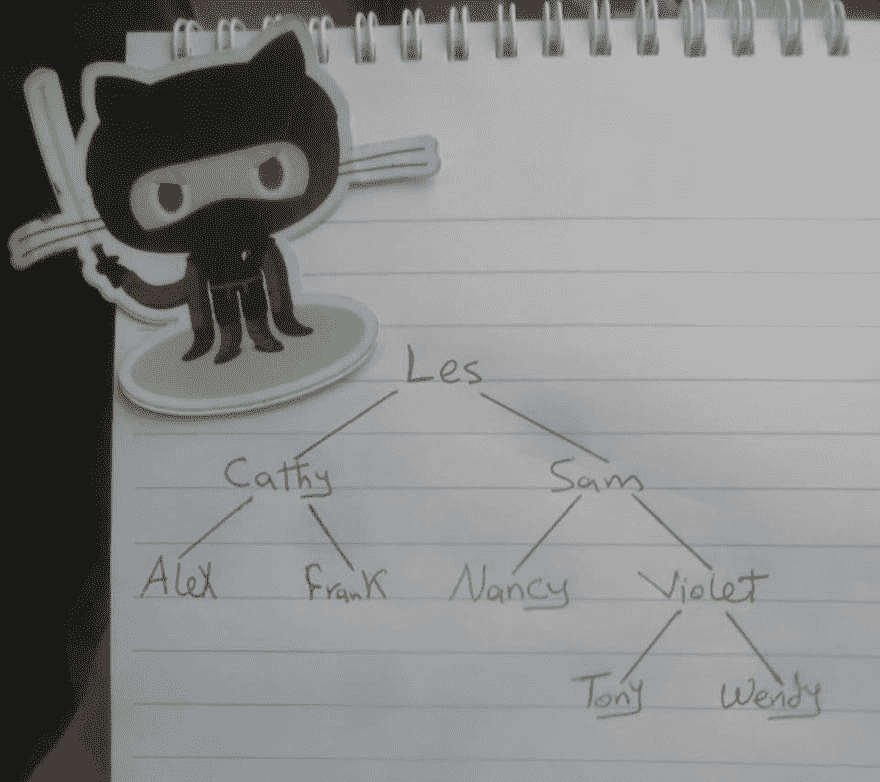 Les
Cathy Sam
Alex Frank Nancy Violet
Tony Wendy